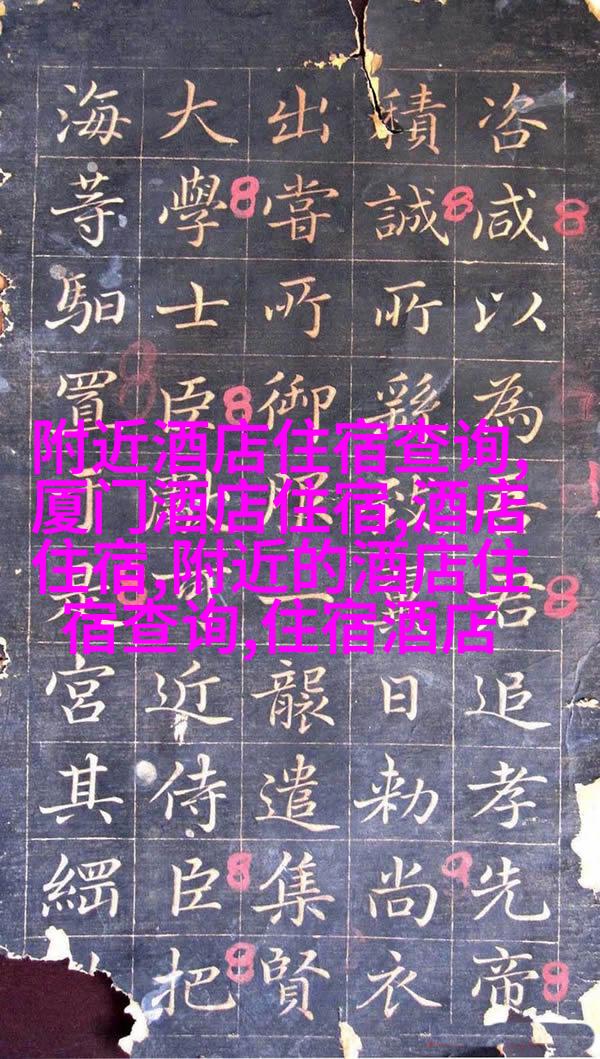 咨咸以為追孝先帝
積誠所日勑尚衣
出嘗所御一襲遣集賢
大學士臣近侍臣把
海等馹置宮其繝
附近酒店住宿查询,
厦门酒店住宿,酒店
住宿,附近的酒店住
宿查询,住宿酒店